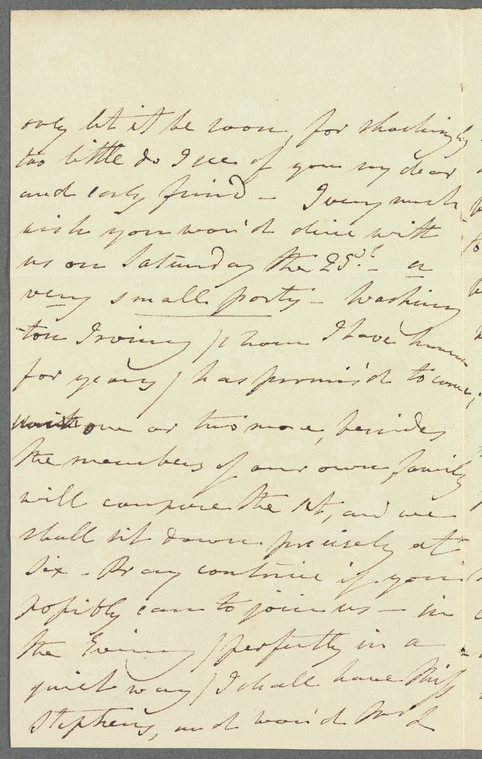 only let it be soon, for shockingly
too little do I see of you my dear
and early friend – I very much
wish you wou'd dine with
us on Saturday the 25th – a
very small party – Washing
ton Irving / whom I have known
for years / has promis'd to come,
one or two more, besides
the members of our own family
will compose the set, and we
shall sit down precisely at
six – Pray contrive if you
possibly can to join us – in
the Evening / perfectly in a
quiet way / I shall have Miss
Stephens, and wou'd Mrs L